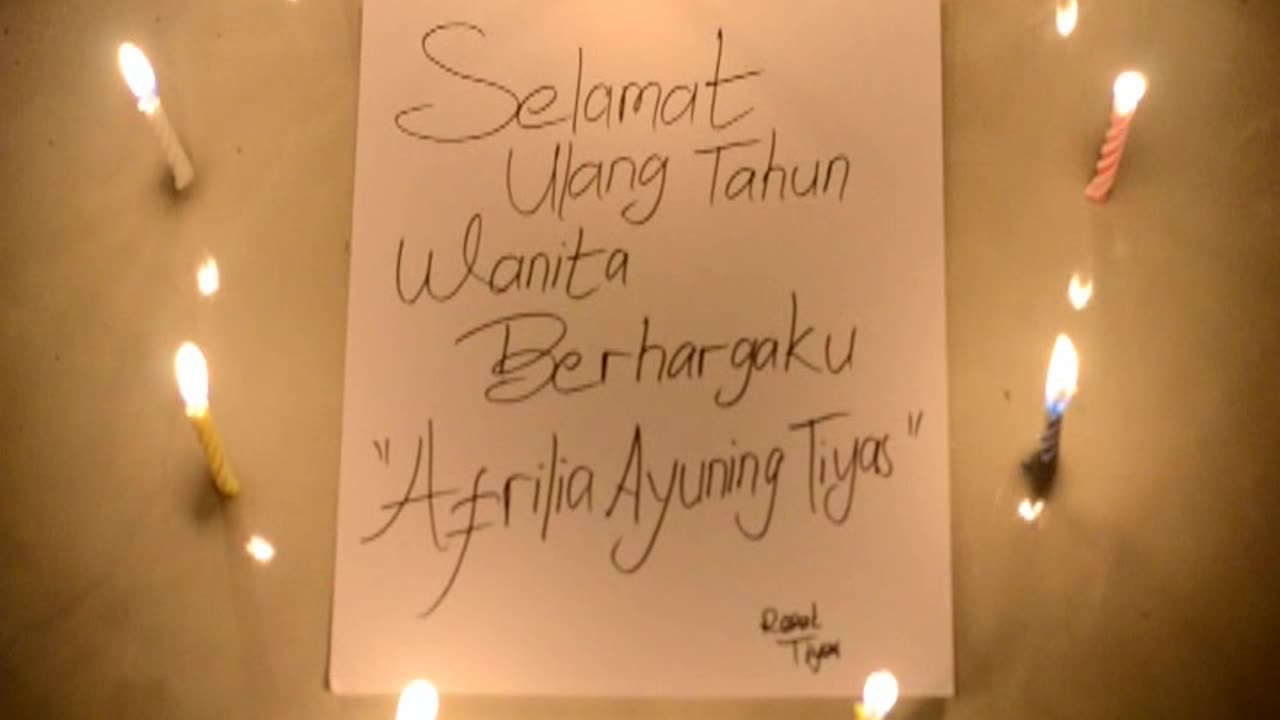 Selamat
Ulang Tahun
Wanita
Berhargaku
"Afrilia Ayuning Tiyas"
Tiyas